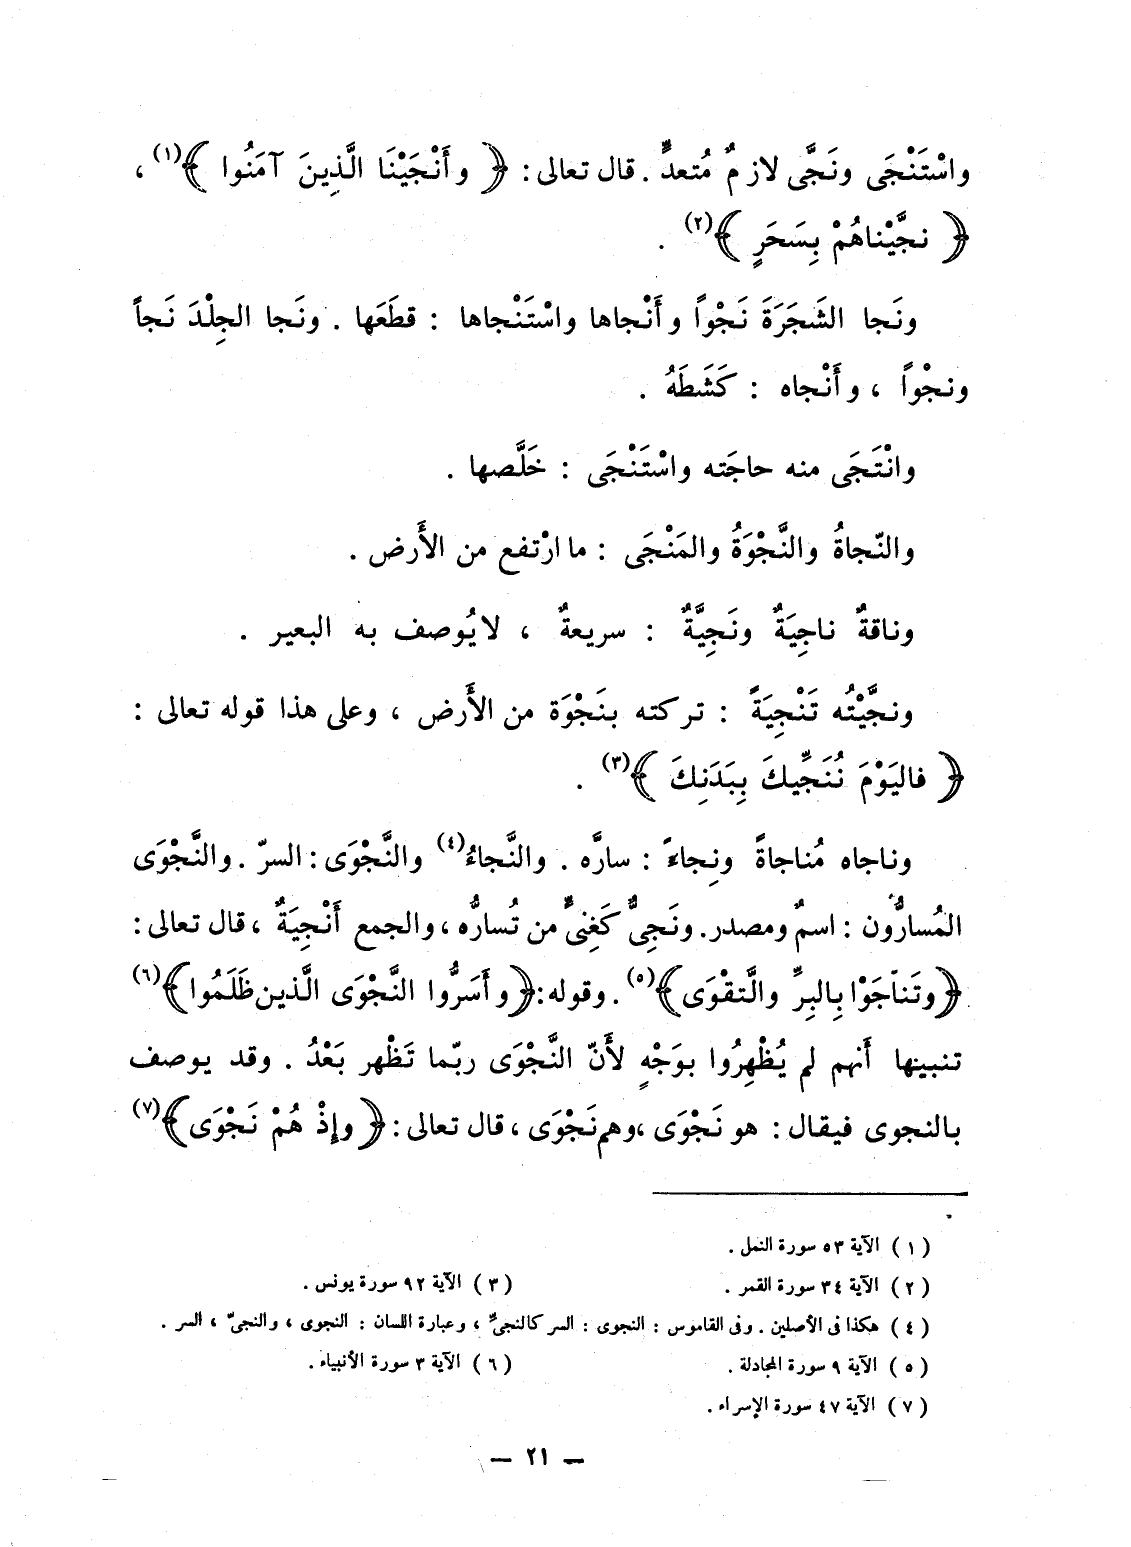 واسْتَنْجَى ونَجَّى لازمٌ مُتعدٌّ . قال تعالى : ﴿ وأَنْجَيْنَا الَّذِينَ آمَنُوا ﴾(١) ،
﴿ نجَّيْناهُمْ بِسَحَرٍ ﴾(٢) .
ونَجا الشَجَرَةَ نَجْواً وأَنْجاها واسْتَنْجاها : قطَعَها . ونَجا الجِلْدَ نَجاً
ونجْواً ، وأَنْجاه : كَشَطَهُ .
وانْتَجَى منه حاجَته واسْتَنْجَى : خَلَّصها .
والنّجاةُ والنَّجْوَةُ والمَنْجَى : ما ارْتفع من الأَرض .
وناقةٌ ناجِيَةٌ ونَجِيَّةٌ : سريعةٌ ، لا يُوصف به البعير .
ونجَّيْتُه تَنْجِيَةً : تركته بنَجْوَة من الأَرض ، وعلى هذا قوله تعالى :
﴿ فاليَوْمَ نُنَجِّيكَ بِبَدَنِكَ ﴾(٣) .
وناجاه مُناجاةً ونِجاءً : سارَّه . والنَّجاءُ(٤) والنَّجْوَى : السرّ . والنَّجْوَى
المُسارُّون : اسمٌ ومصدر. ونَجِىٌّ كَغنِىٌّ من تُسارُّه ، والجمع أَنْجِيَةٌ ، قال تعالى :
﴿ وتَناَجَوْا بِالبِرِّ والَّتقْوَى ﴾(٥) . وقوله : ﴿ وأَسَرُّوا النَّجْوَى الَّذين ظَلَمُوا ﴾(٦)
تنبينها أَنهم لم يُظْهِرُوا بوَجْهٍ لأَنّ النَّجْوَى ربّما تَظْهر بَعْدُ . وقد يوصف
بالنجوى فيقال : هو نَجْوَى ، وهم نَجْوَى ، قال تعالى : ﴿ وإِذْ هُمْ نَجْوَى ﴾(٧)
( ١ ) الآية ٥٣ سورة النمل .
( ٢ ) الآية ٣٤ سورة القمر . ( ٣ ) الآية ٩٢ سورة يونس .
( ٤ ) هكذا فى الأصلين . وفى القاموس : النجوى : السر كالنجىّ ، وعبارة اللسان : النجوى ، والنجىّ ، السر .
( ٥ ) الآية ٩ سورة المجادلة . ( ٦ ) الآية ٣ سورة الأنبياء .
( ٧ ) الآية ٤٧ سورة الإسراء .
— ٢١ —